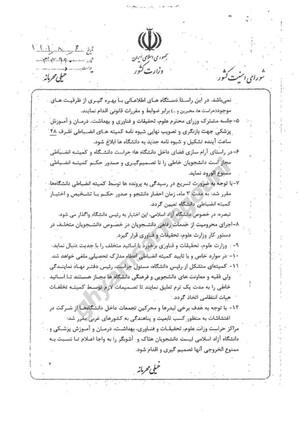 جمهوری اسلامی ایران
وزارت کشور
شورای امنیت کشور
خیلی محرمانه
نمی‌باشد. در این راستا دستگاه های اطلاعاتی با بهره گیری از ظرفیت های
موجود برابر ضوابط و مقررات قانونی اقدام نمایند.
۵- جلسه مشترک وزرای محترم علوم، تحقیقات و فناوری و بهداشت، درمان و آموزش
پزشکی جهت بازنگری و تصویب نهایی شیوه نامه کمیته های انضباطی ظرف ۴۸
ساعت آینده تشکیل و شیوه نامه جدید به دانشگاه ها ابلاغ شود.
۶- در راستای آرام سازی فضای داخل دانشگاه ها؛ حراست دانشگاه و کمیته انضباطی
مجاز است دانشجویان خاطی را تا تصمیم‌گیری و صدور حکم کمیته انضباطی
ممنوع الورود نماید.
۷- با توجه به ضرورت تسریع در رسیدگی به پرونده ها توسط کمیته انضباطی دانشگاه‌ها
مقرر شد، به مدت ۳ ماه، زمان احضار دانشجو و صدور حکم با تشخیص و اختیار
کمیته انضباطی دانشگاه تعیین گردد.
تبصره: در خصوص دانشگاه آزاد اسلامی، این اختیار به رئیس دانشگاه واگذار می شود.
۸- اجرای محرومیت از خدمات رفاهی دانشجویان در خصوص دانشجویان متخلف در
دستور کار وزارت علوم، تحقیقات و فناوری قرار گیرد.
۹- وزارت علوم، تحقیقات و فناوری برخورد با اساتید متخلف را با جدیت دنبال نماید.
۱۰- در موارد خاص و با تایید کمیته انضباطی اعطاء مدارک تحصیلی ملغی خواهد شد.
۱۱- کمیته‌های متشکل از رئیس دانشگاه، مسئول حراست، رئیس دفتر نهاد نمایندگی
ولی فقیه و معاونت های دانشجویی و فرهنگی دانشگاه ها مجاز هستند تا اساتید
خاطی را به مدت یک ترم تعلیق نمایند تا تصمیمات لازم توسط کمیته تخلفات
هیات انتظامی اتخاذ گردد.
۱۲- با توجه به هدف برخی لیدرها و محرکین تجمعات داخل دانشگاه‌ها از شرکت در
اغتشاشات به منظور کسب تابعیت و پناهندگی به کشورهای غربی مقرر شد؛
مراکز حراست وزارت علوم، تحقیقات و فناوری، بهداشت، درمان و آموزش پزشکی و
دانشگاه آزاد اسلامی لیست دانشجویان هتاک و آشوبگر را به واجا اعلام تا نسبت به
ممنوع الخروجی آنها تصمیم گیری و اقدام شود.
خیلی محرمانه